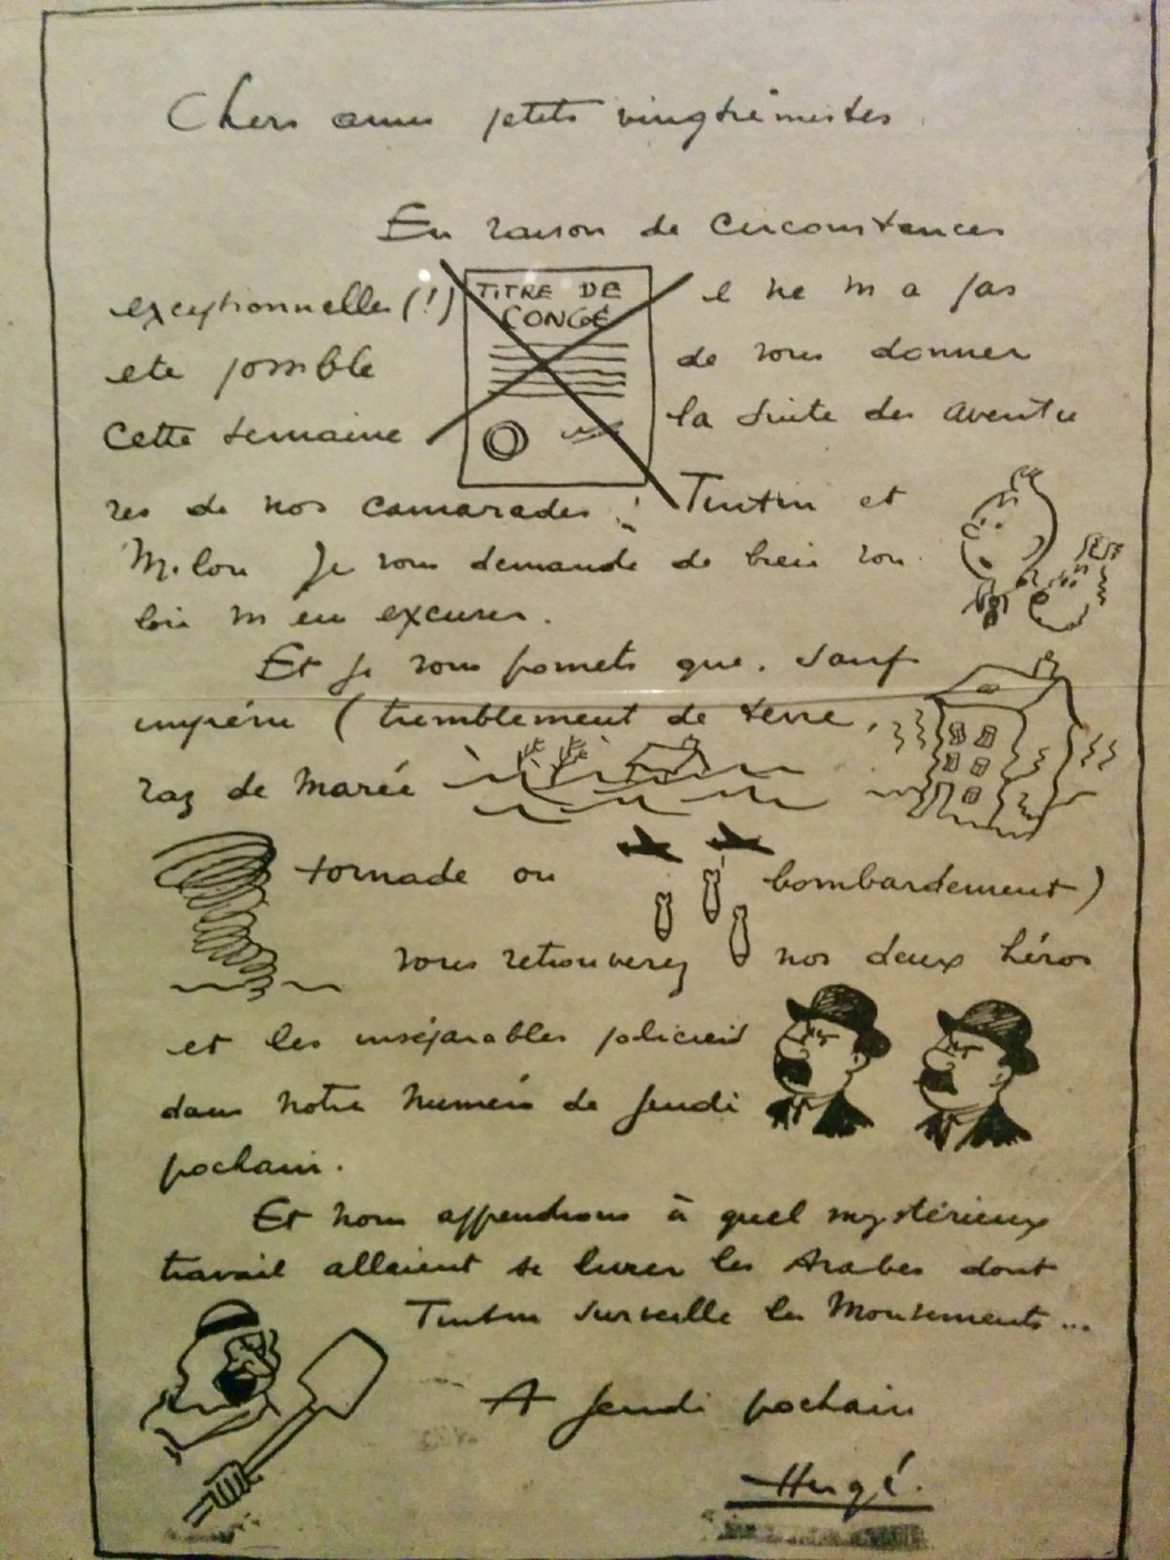 Chers amis petits vingtiémistes
En raison de circonstances
exceptionnelles (!)
TITRE DE
CONGÉ
il ne m a pas
ete possible
de vous donner
cette semaine
la suite des aventu
res de nos camarades : Tintin et
Milou Je vous demande de bien vou
loir m en excuser.
Et je vous promets que. sauf
imprévu (tremblement de terre,
raz de marée
tornade ou bombardement)
vous retrouverez nos deux héros
et les inséparables policiers
dans notre numéro de Jeudi
prochain.
Et nous apprendrons à quel mystérieux
travail allaient se livrer les Arabes dont
Tintin surveille les mouvements ...
A Jeudi prochain
Hergé.